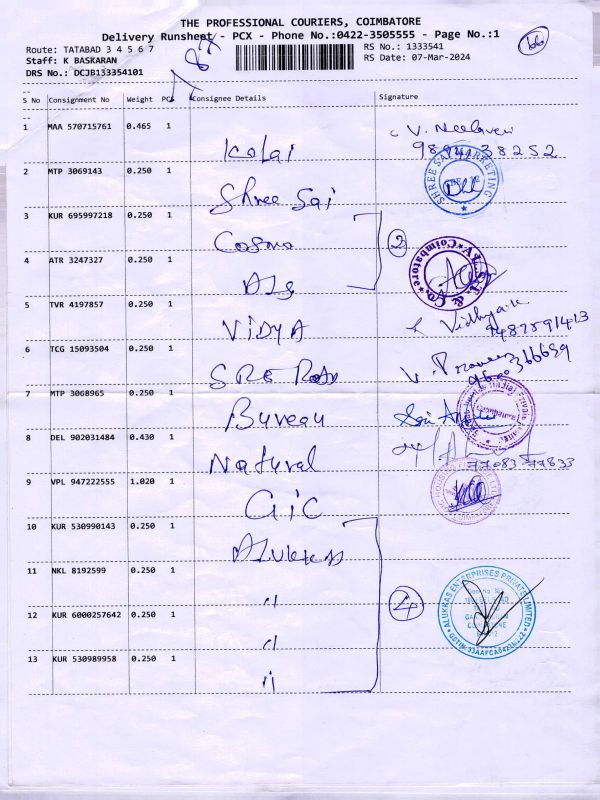 THE PROFESSIONAL COURIERS, COIMBATORE
Delivery Runsheet - PCX - Phone No.:0422-3505555 - Page No.:1
Route: TATABAD 3 4 5 6 7
RS No.: 1333541
Staff: K BASKARAN
RS Date: 07-Mar-2024
DRS No.: DCJB133354101
S No Consignment No Weight PCS Consignee Details Signature
1 MAA 570715761 0.465 1
Kolai
2 MTP 3069143 0.250 1
Shree Sai
SHREE SAI MARKETING
3 KUR 695997218 0.250 1
Cosmo
2
4 ATR 3247327 0.250 1
& Co. Coimbatore
5 TVR 4197857 0.250 1
VIDYA
6 TCG 15093504 0.250 1
7 MTP 3068965 0.250 1
Bureau
8 DEL 902031484 0.430 1
Natural
77083 77833
9 VPL 947222555 1.020 1
GIC
10 KUR 530990143 0.250 1
11 NKL 8192599 0.250 1
"
4
ALUKKAS ENTERPRISES PRIVATE LIMITED
12 KUR 6000257642 0.250 1
"
13 KUR 530989958 0.250 1
"